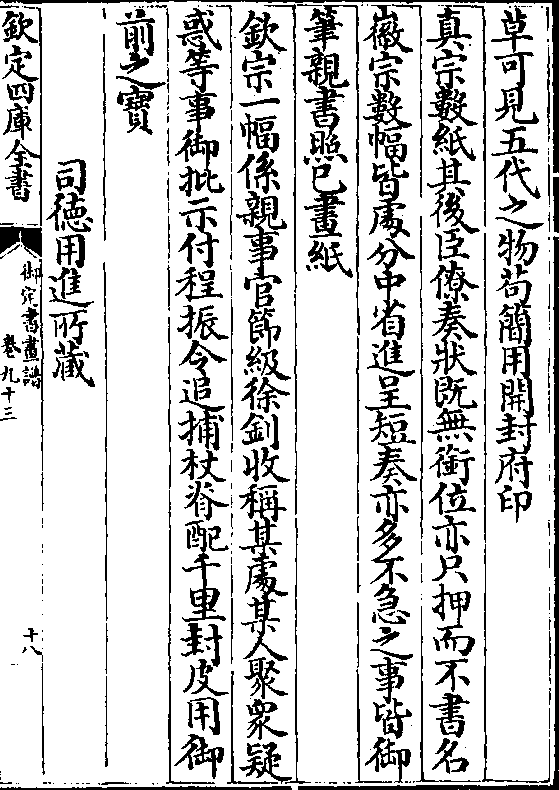 草可見五代之物苟簡用開封府印
真宗數紙其後臣僚奏狀既無銜位亦只押而不書名
徽宗數幅皆處分中省進呈短奏亦多不急之事皆御
筆親書照已畫紙
欽宗一幅係親事官節級徐釗收稱某處某人聚衆疑
惑等事御批示付程振令追捕杖脊配千里封皮用御
前之寳
司徳用進所藏
欽定四庫全書
御定書畫譜
卷九十三
十八